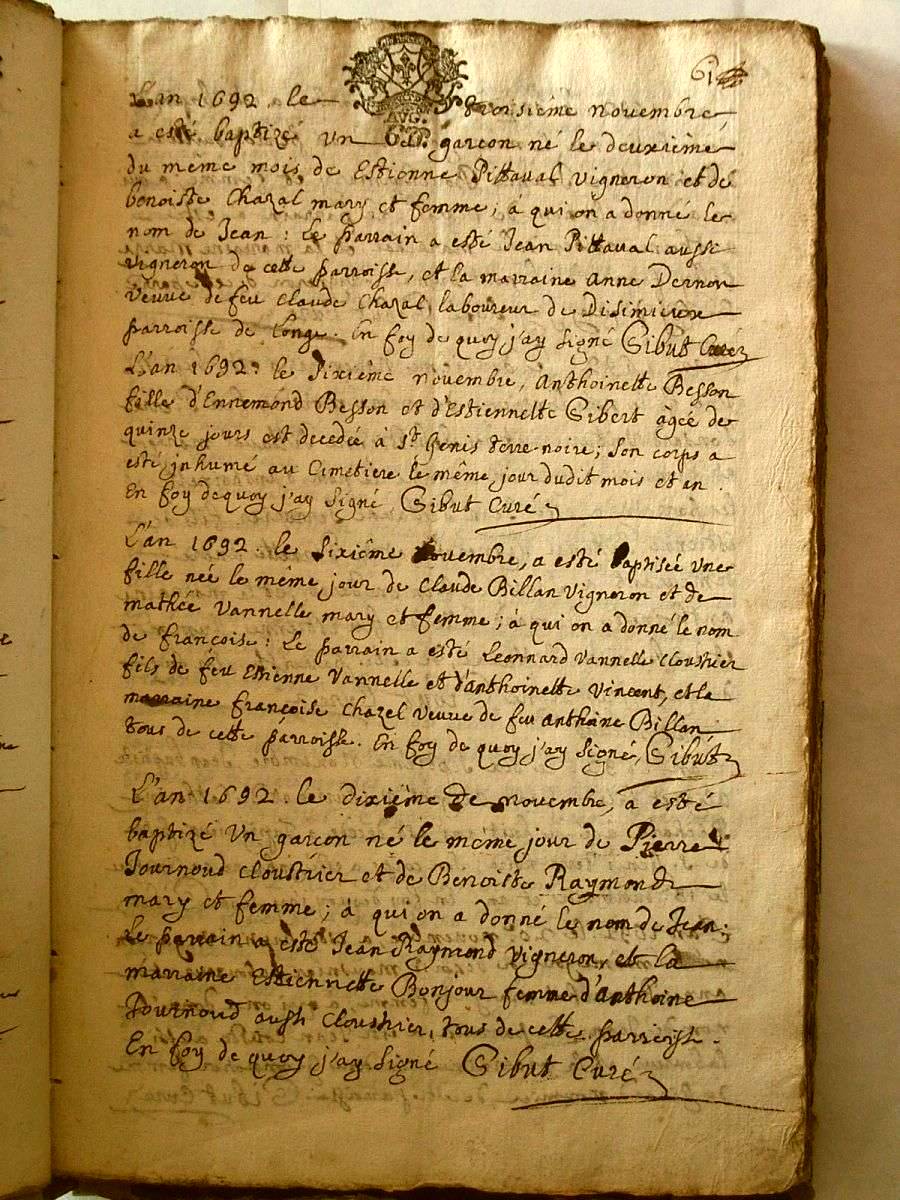 61
L'an 1692. le troisième novembre
a esté baptizé un garçon né le deuxième
du même mois de Estienne Pittaval vigneron et de
benoiste Chazal mary et femme; à qui on a donné le
nom de Jean: Le parrain a esté Jean Pittaval aussi
vigneron de cette parroisse, et la marraine Anne Dernon
veuve de feu Claude Chazal laboureur de Disimieux
parroisse de Longe. En foy de quoy j'ay signé Gibut Curé
L'an 1692: le sixième novembre, Anthoinette Besson
fille d'Ennemond Besson et d'Estiennette Gibert âgée de
quinze jours est decedée à St Genis terre noire; son corps a
esté inhumé au Cimetiere le même jour dudit mois et an.
En foy de quoy j'ay signé Gibut Curé
L'an 1692. le sixième novembre, a esté baptisée une
fille née le même jour de Claude Billan vigneron et de
mathée Vannelle mary et femme; à qui on a donné le nom
de françoise: Le parrain a esté Leonnard Vannelle Cloustrier
fils de feu Etienne Vannelle et d'anthoinette Vincent, et la
marraine françoise Chazel veuve de feu anthoine Billan
tous de cette parroisse. En foy de quoy j'ay signé, Gibut
L'an 1692. le dixième de novembre, a esté
baptizé un garçon né le même jour de Pierre
Journoud Cloustrier et de Benoiste Raymond
mary et femme; à qui on a donné le nom de Jean:
Le parrain a esté Jean Raymond vigneron, et la
marraine Estiennette Bonjour femme d'anthoine
Journoud aussi Cloustrier, tous de cette parroisse.
En foy de quoy j'ay signé Gibut Curé